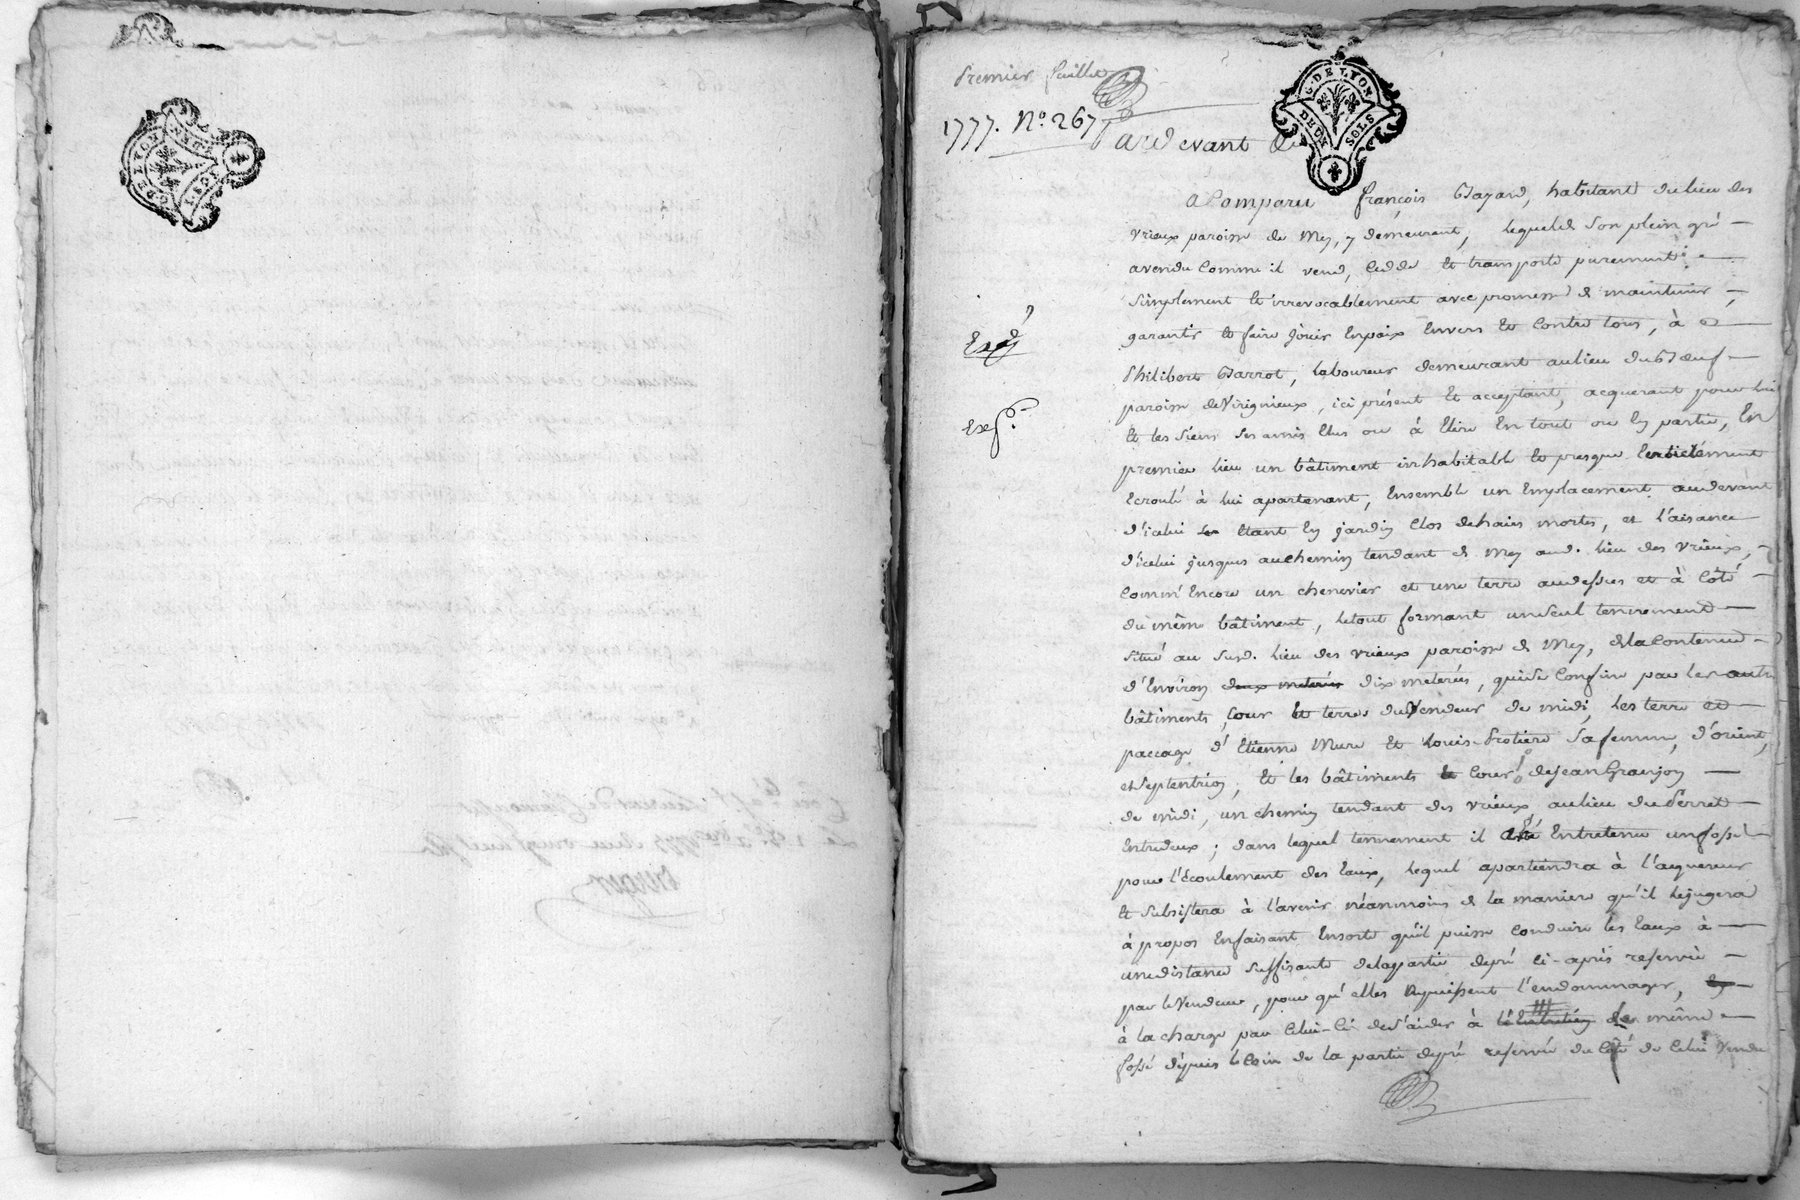 G. DE LYON
DEUX SOLS
Premier feuillet
G. DE LYON
DEUX SOLS
1777. N.o 267
Pardevant
a Comparu françois Bayard, habitant du lieu des
Vrieux paroisse de Mey, y demeurant, lequel de Son plein gré
a vendu Comme il vend, Cedde et transporte purement
Simplement et irrevocablement avec promesse de maintenir,
garantir et faire jouir En paix Envers Et Contre tous, à
Philibert Barrot, laboureur demeurant au lieu du Boeuf
paroisse de Virignieux, ici présent Et acceptant, acquerant pour lui
Et les Siens Ses amis Elus ou à Elire En tout ou En partie, En
premier lieu un bâtiment inhabitable Et presque Entiérement
Ecroulé à lui apartenant, Ensemble un Emplacement audevant
d'icelui Etant En jardin Clos de haies mortes, et l'aisance
d'icelui jusques au chemin tendant de Mey aud. lieu des Vrieux,
Comm' Encore un chenevier et une terre audessus et à Côté
du même bâtiment, le tout formant un Seul tennement
Situé au Susd. lieu des Vrieux paroisse de Mey, de la Contenue
d'Environ deux meterées dix meterées, qui Se Confine par les autres
bâtiments, Cour et terres du Vendeur de midi, les terre et
paccage d'Etienne Mure Et Louis Protiere Sa femme, d'orient,
et Septentrion, Et les bâtiments et Cour de Jean Granjon
de midi, un chemin tendant des Vrieux au lieu du Perret
Entredeux; dans lequel tennement il a été Entretenu un fossé
pour l'Ecoulement des Eaux, lequel apartiendra à l'aquereur
Et Subsistera à l'avenir néanmoins de la maniere qu'il le jugera
à propos En faisant En sorte qu'il puisse Conduire les Eaux à
une distance Suffisante de la partie de pré Ci-après reservée
par le Vendeur, pour qu'elles ne puissent l'endommager,
à la charge par Celui-Ci de S'aider à l'Entretien du même
fossé depuis le Coin de la partie de pré reservée du Côté de Celui Vendu